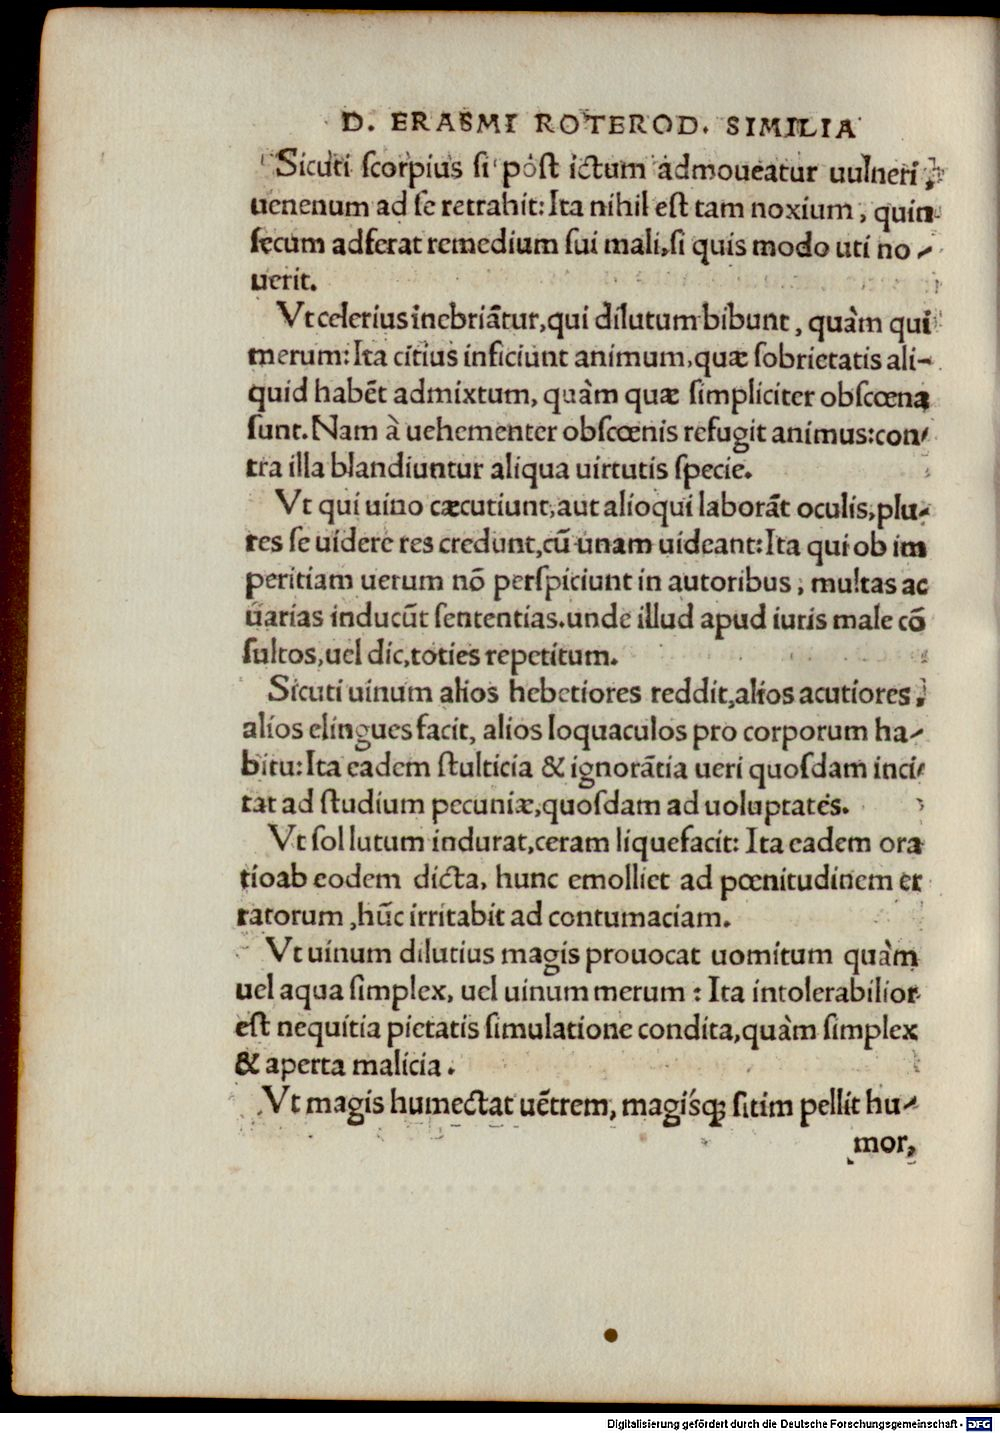 D. ERASMI ROTEROD. SIMILIA
Sicuti ſcorpius ſi poſt ictum admoueatur uulneri,
uenenum ad ſe retrahit: Ita nihil eſt tam noxium, quin
ſecum adferat remedium ſui mali, ſi quis modo uti no-
uerit.
Vt celerius inebriãtur, qui dilutum bibunt, quàm qui
merum: Ita citius inficiunt animum, quæ ſobrietatis ali-
quid habẽt admixtum, quàm quæ ſimpliciter obſcœna
ſunt. Nam à uehementer obſcœnis refugit animus: con-
tra illa blandiuntur aliqua uirtutis ſpecie.
Vt qui uino cæcutiunt, aut alioqui laborãt oculis, plu-
res ſe uidere res credunt, cũ unam uideant: Ita qui ob im
peritiam uerum nõ perſpiciunt in autoribus, multas ac
uarias inducũt ſententias. unde illud apud iuris male cõ
ſultos, uel dic, toties repetitum.
Sicuti uinum alios hebetiores reddit, alios acutiores,
alios elingues facit, alios loquaculos pro corporum ha-
bitu: Ita eadem ſtulticia & ignorãtia ueri quoſdam inci-
tat ad ſtudium pecuniæ, quoſdam ad uoluptates.
Vt ſol lutum indurat, ceram liquefacit: Ita eadem ora
tio ab eodem dicta, hunc emolliet ad pœnitudinem er
ratorum, hũc irritabit ad contumaciam.
Vt uinum dilutius magis prouocat uomitum quàm
uel aqua ſimplex, uel uinum merum: Ita intolerabilior
eſt nequitia pietatis ſimulatione condita, quàm ſimplex
& aperta malicia.
Vt magis humectat uẽtrem, magiśq; ſitim pellit hu-
mor,
Digitalisierung gefördert durch die Deutsche Forschungsgemeinschaft - DFG